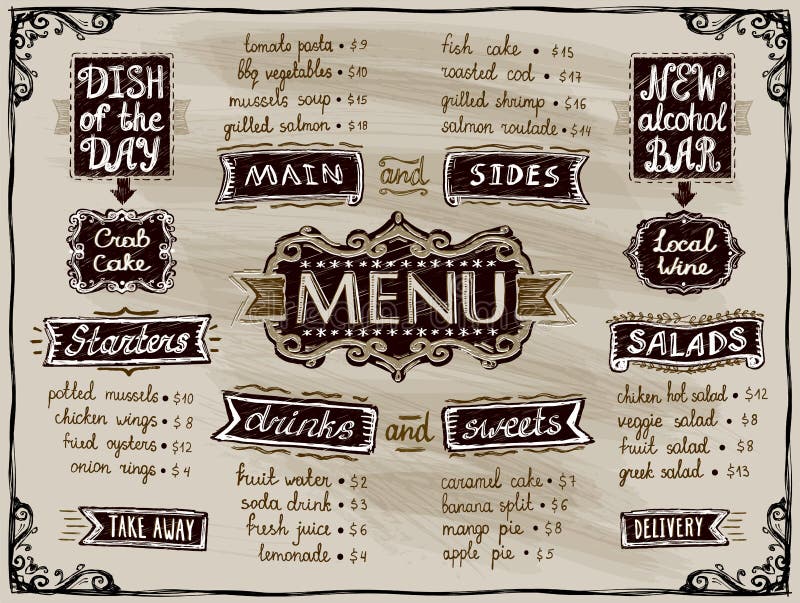 DISH
of the
DAY
Crab
Cake
tomato pasta • $9
bbq vegetables • $10
mussels soup • $15
grilled salmon • $18
fish cake • $15
roasted cod • $17
grilled shrimp • $16
salmon roulade • $14
NEW
alcohol
BAR
Local
Wine
MAIN and SIDES
MENU
Starters
potted mussels • $10
chicken wings • $8
fried oysters • $12
onion rings • $4
TAKE AWAY
drinks and sweets
fruit water • $2
soda drink • $3
fresh juice • $6
lemonade • $4
caramel cake • $7
banana split • $6
mango pie • $8
apple pie • $5
SALADS
chiken hot salad • $12
veggie salad • $8
fruit salad • $8
greek salad • $13
DELIVERY